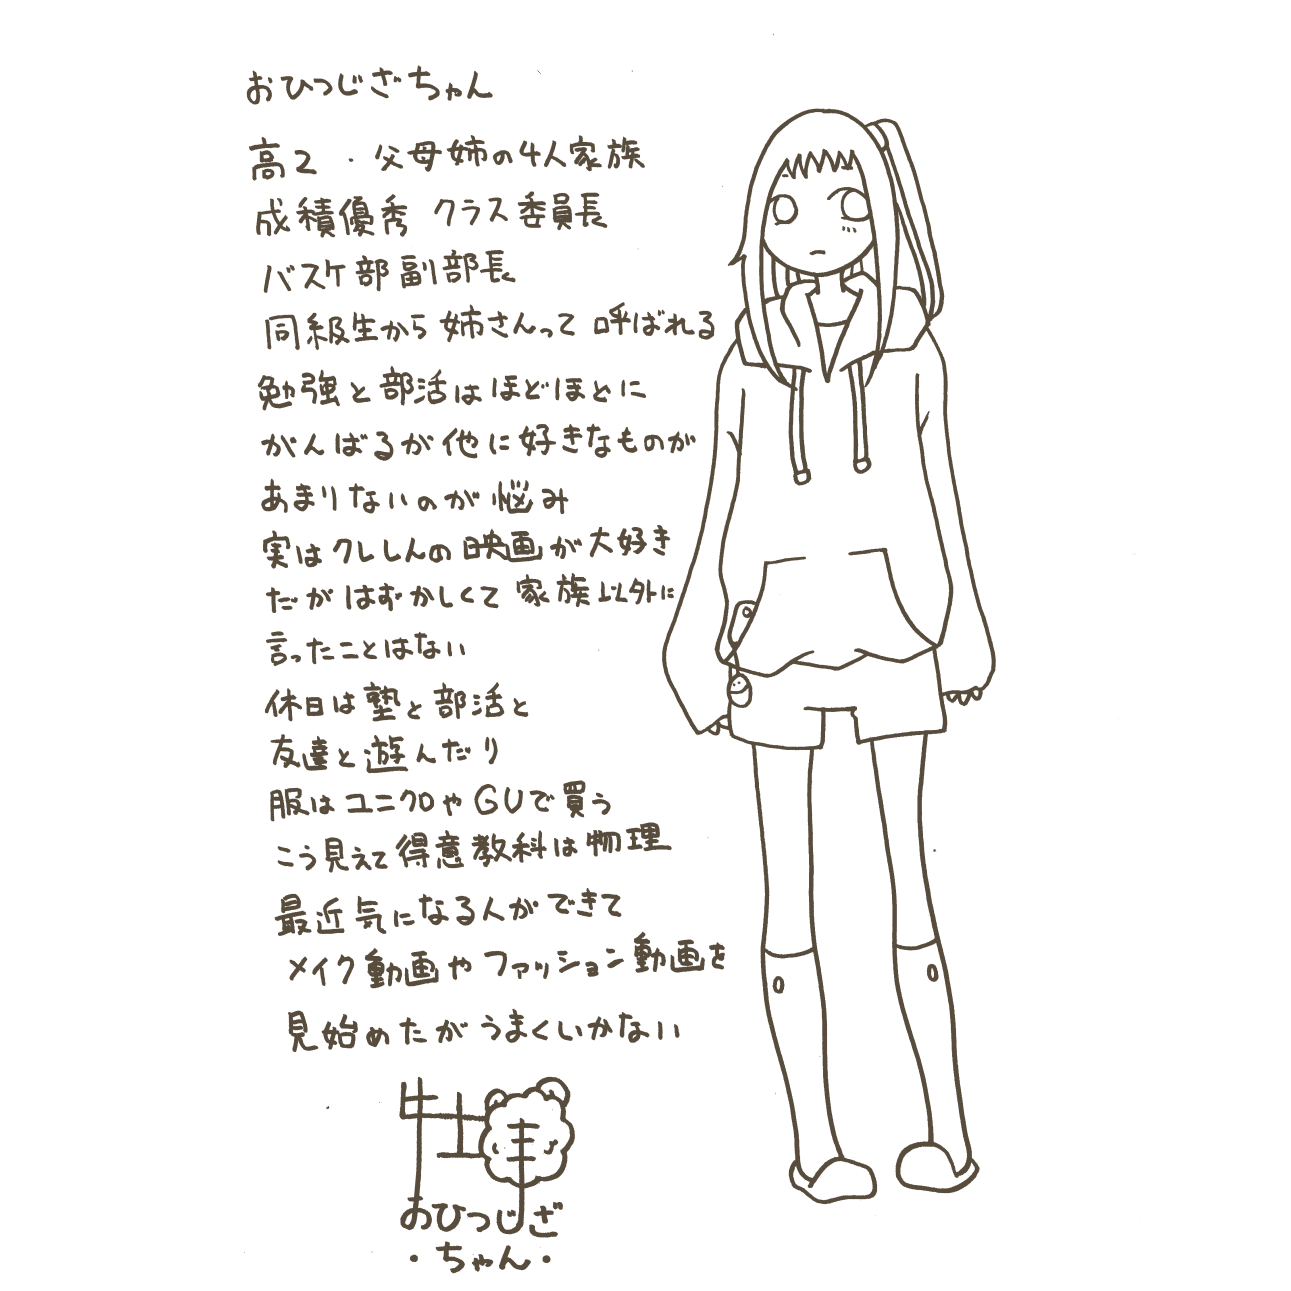 おひつじざちゃん
高2・父母姉の4人家族
成積優秀 クラス委員長
バスケ部副部長
同級生から姉さんって呼ばれる
勉強と部活はほどほどに
がんばるが他に好きなものが
あまりないのが悩み
実はクレしんの映画が大好き
だがはずかしくて家族以外に
言ったことはない
休日は塾と部活と
友達と遊んだり
服はユニクロやGUで買う
こう見えて得意教科は物理
最近気になる人ができて
メイク動画やファッション動画を
見始めたがうまくいかない
牡羊
おひつじざ
・ちゃん・